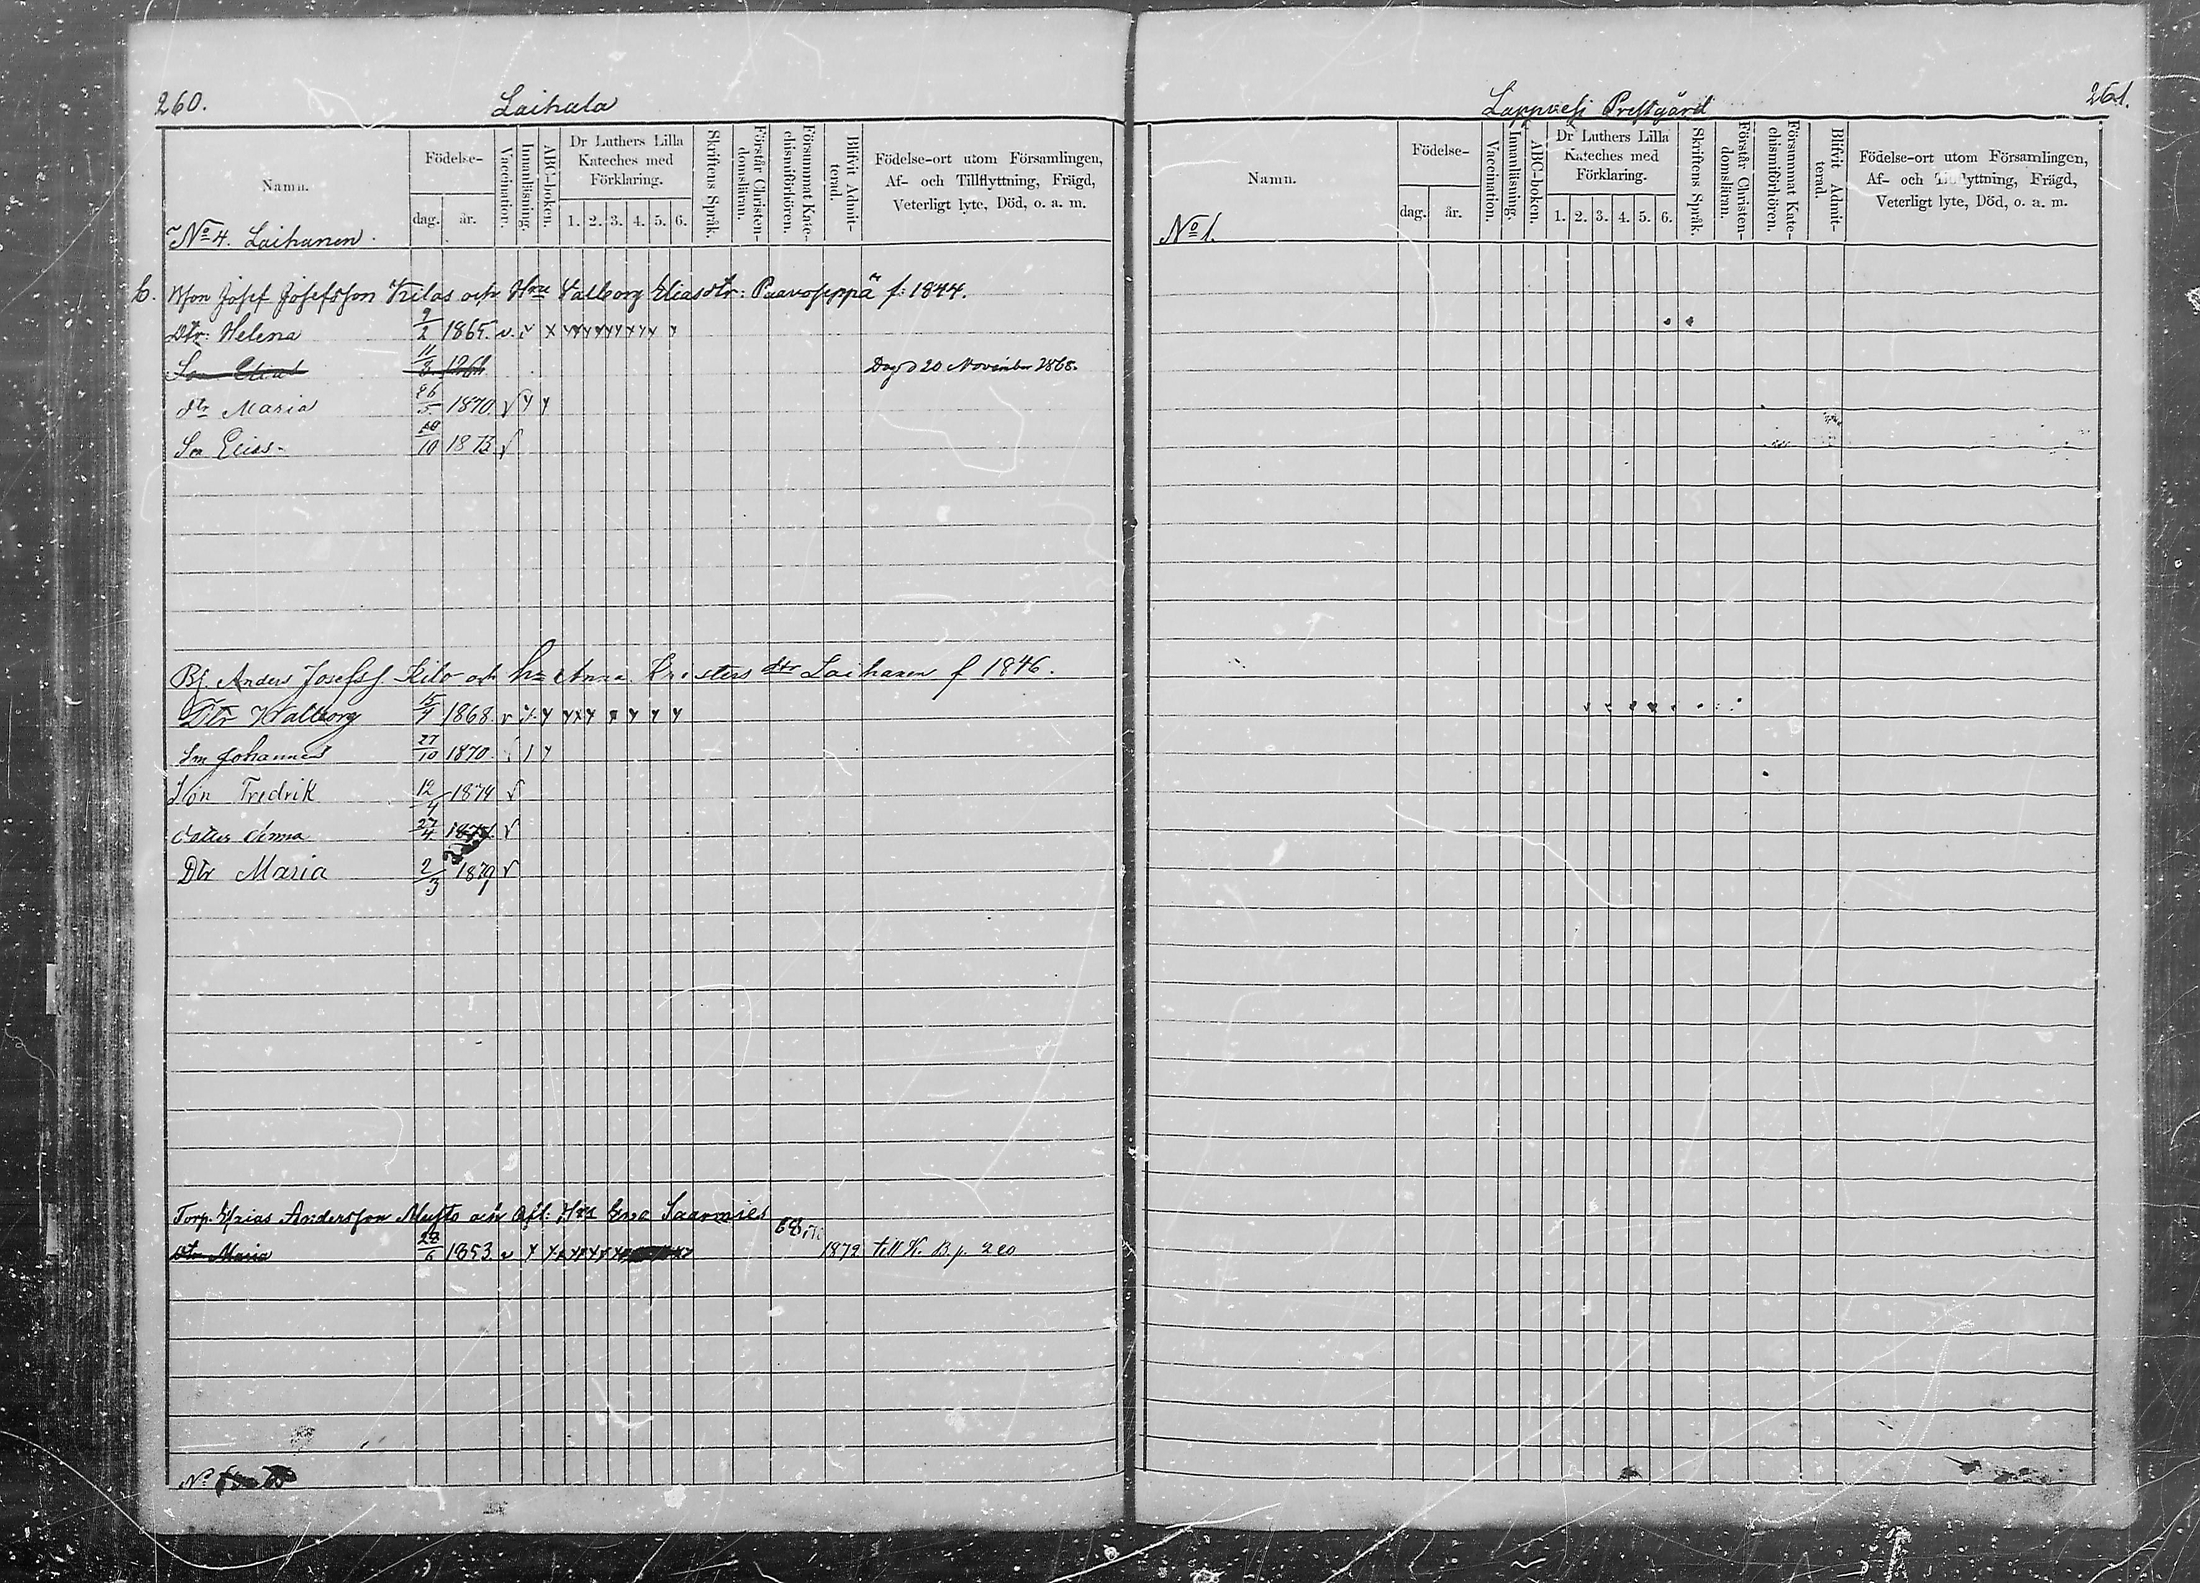 260.
Laihala
Namn.
Födelse-
dag.
år.
Vaccination.
Innanläsning.
ABC-boken.
Dr Luthers Lilla
Kateches med
Förklaring.
1. 2. 3. 4. 5. 6.
Skriftens Språk.
Förstår Christen-
domsläran.
Försummat Kate-
chismiförhören.
Blifvit Admit-
terad.
Födelse-ort utom Församlingen,
Af- och Tillflyttning, Frägd,
Veterligt lyte, Död, o. a. m.
No 4. Laihanen.
b. Josef Josefsson Kilas och Hru Valborg Eliasdtr: Paavoseppä f: 1844.
Dtr: Helena 9/2 1865. v.
Son Elias 11/3 Död 20 November 1868.
dtr Maria 26/5 1870
Son Elias 10 1873
Anders Josefss Kilo och hu Anna dtr Laihanen f 1846.
Dtr Walborg 15/9 1868 v
Son Johannes 27/10 1870
Son Fredrik 12/4 1874
dotter Anna 27/4
Dtr Maria 2/3 1879
Torp. Andersson och Saarmies
dtr Maria 28/6 1853 v 1872 till K. B p. 220
No
Lappvesi Prestgård
261.
Namn.
Födelse-
dag.
år.
Vaccination.
Innanläsning.
ABC-boken.
Dr Luthers Lilla
Kateches med
Förklaring.
1. 2. 3. 4. 5. 6.
Skriftens Språk.
Förstår Christen-
domsläran.
Försummat Kate-
chismiförhören.
Blifvit Admit-
terad.
Födelse-ort utom Församlingen,
Af- och Tillflyttning, Frägd,
Veterligt lyte, Död, o. a. m.
No 1.